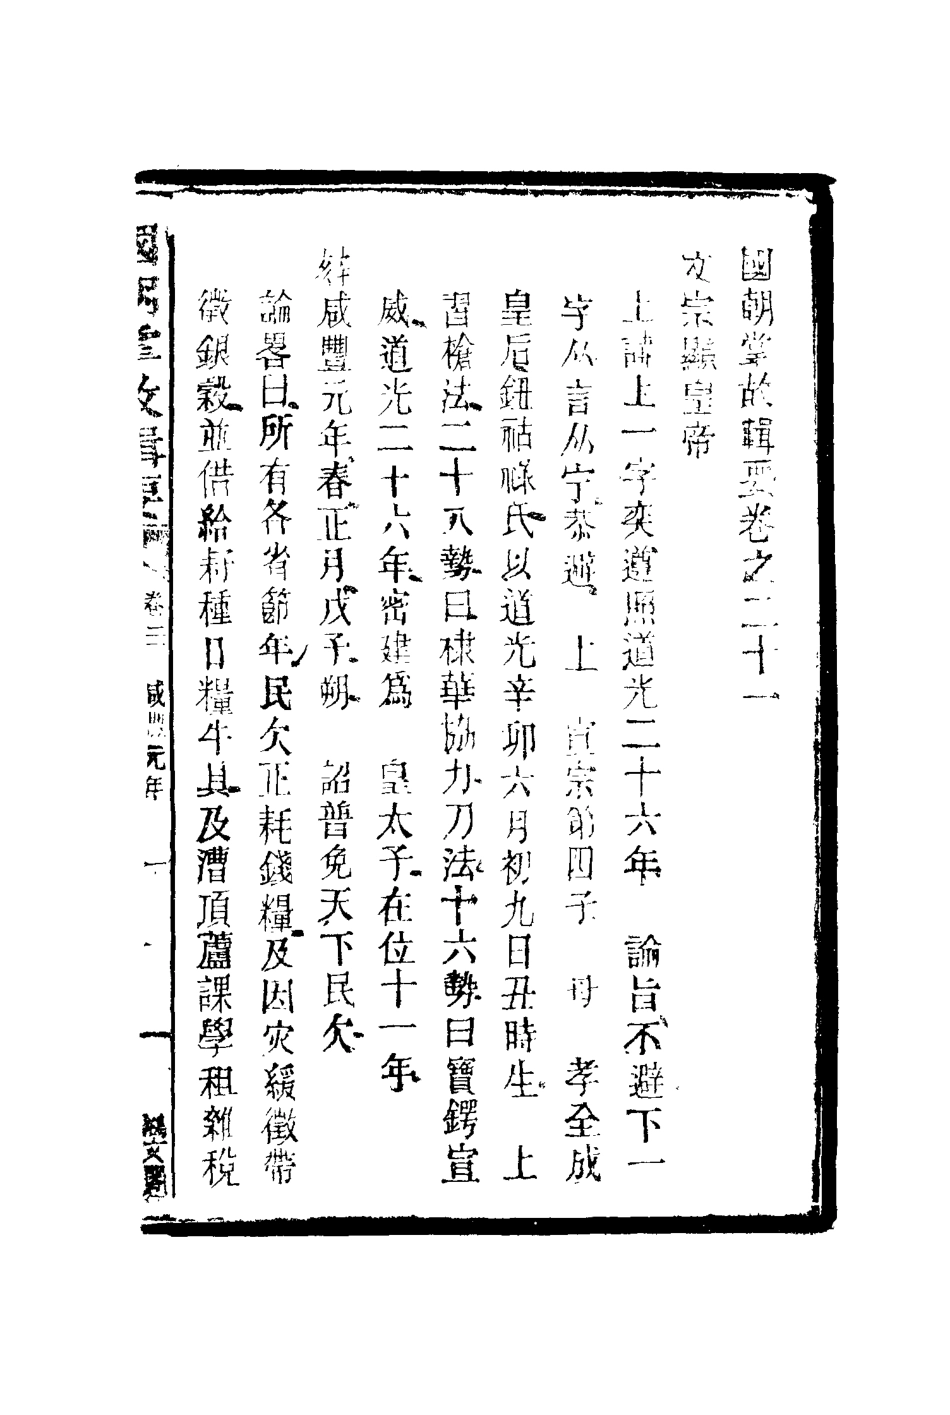 國朝掌故輯要卷之二十一
文宗顯皇帝
上諱上一字奕遵照道光二十六年　諭旨不避下一
字从言从宁恭避　上　宣宗第四子　母　孝全成
皇后鈕祜祿氏以道光辛卯六月初九日丑時生　上
習槍法二十八勢曰棣華協力刀法十六勢曰寶鍔宣
威道光二十六年密建爲　皇太子在位十一年
咸豐元年春正月戊子朔　詔普免天下民欠
諭畧曰所有各省節年民欠正耗錢糧及因灾緩徵帶
徵銀穀並借給籽種口糧牛具及漕項蘆課學租雜稅
國朝掌故輯要　卷二　咸豐元年　一